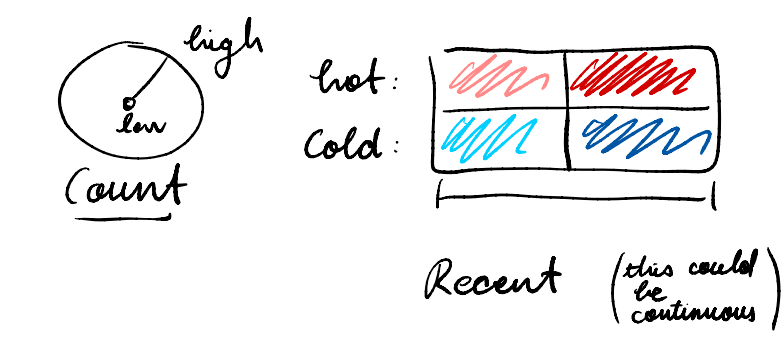 high
low
Count
hot:
Cold:
Recent
(this could
be
continuous)